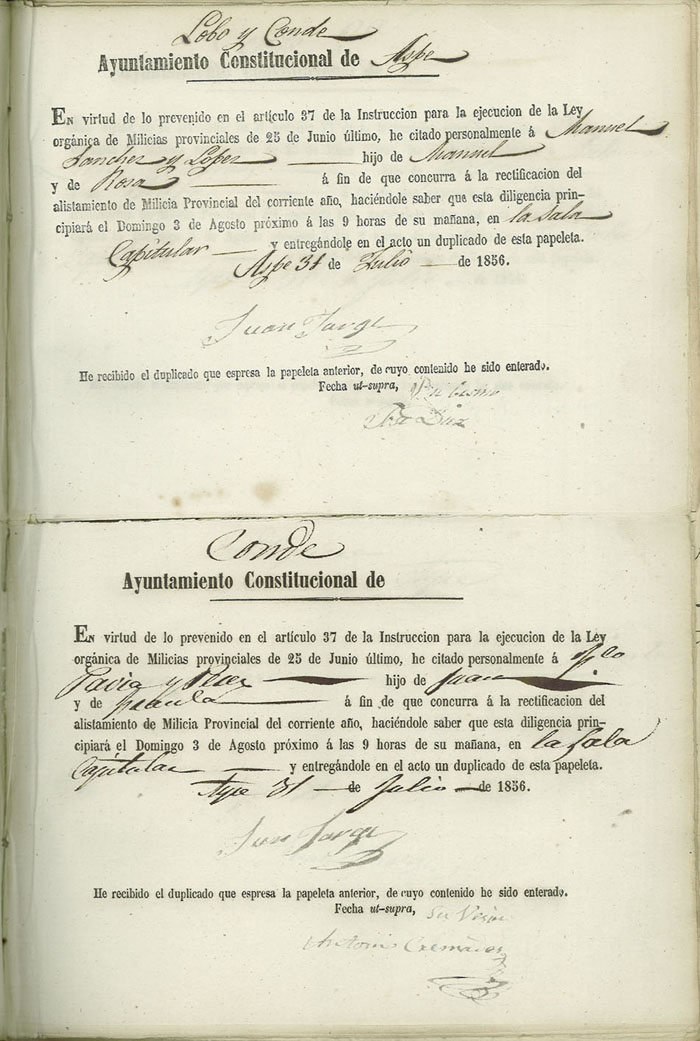 Lobo y Conde
Ayuntamiento Constitucional de Aspe
En virtud de lo prevenido en el artículo 37 de la Instruccion para la ejecucion de la Ley
orgánica de Milicias provinciales de 25 de Junio último, he citado personalmente á Manuel
Sanchez y Lopez hijo de Manuel
y de Rosa á fin de que concurra á la rectificacion del
alistamiento de Milicia Provincial del corriente año, haciéndole saber que esta diligencia prin-
cipiará el Domingo 3 de Agosto próximo á las 9 horas de su mañana, en la Sala
Capitular y entregándole en el acto un duplicado de esta papeleta.
Aspe 31 de Julio de 1856.
Juan
He recibido el duplicado que espresa la papeleta anterior, de cuyo contenido he sido enterado.
Fecha ut-supra,
José Diaz
Conde
Ayuntamiento Constitucional de
En virtud de lo prevenido en el artículo 37 de la Instruccion para la ejecucion de la Ley
orgánica de Milicias provinciales de 25 de Junio último, he citado personalmente á
Pavia y Perez hijo de Juan
y de á fin de que concurra á la rectificacion del
alistamiento de Milicia Provincial del corriente año, haciéndole saber que esta diligencia prin-
cipiará el Domingo 3 de Agosto próximo á las 9 horas de su mañana, en la Sala
Capitular y entregándole en el acto un duplicado de esta papeleta.
Aspe 31 de Julio de 1856.
Juan
He recibido el duplicado que espresa la papeleta anterior, de cuyo contenido he sido enterado.
Fecha ut-supra, su
Antonio Cremades